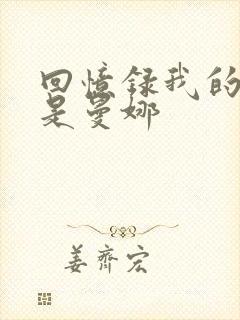 回憶録我的
是曼娜
姜齊宏